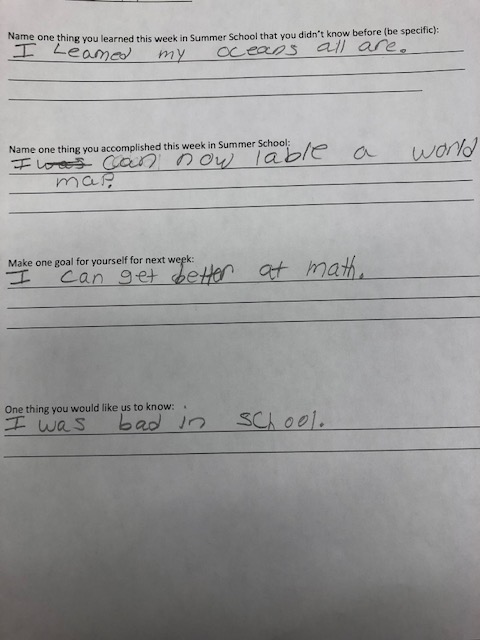 Name one thing you learned this week in Summer School that you didn't know before (be specific):
I Learned my oceans all are.
Name one thing you accomplished this week in Summer School:
I was can now lable a world
map.
Make one goal for yourself for next week:
I can get better at math.
One thing you would like us to know:
I was bad in school.